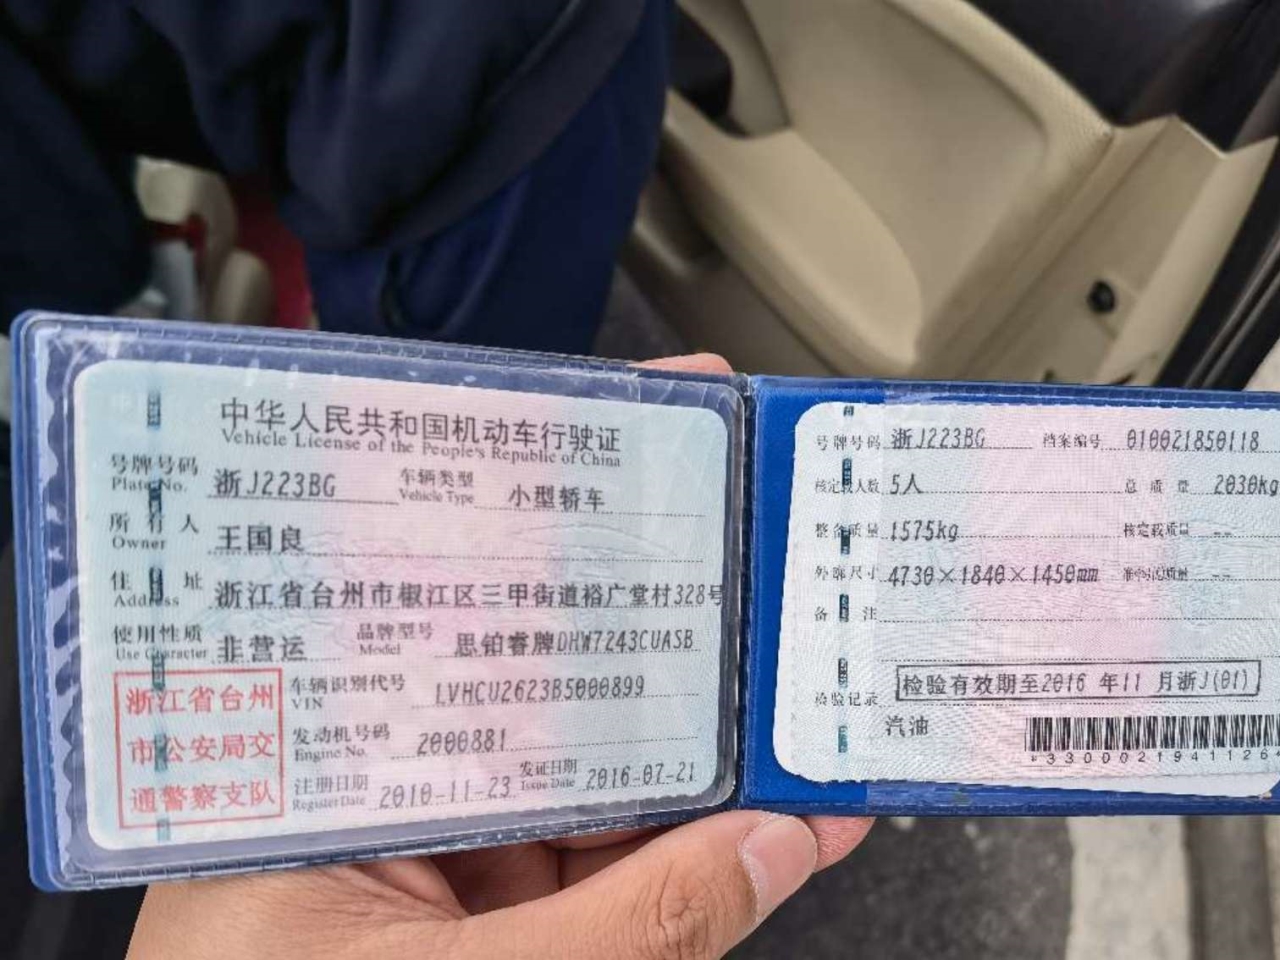 中华人民共和国机动车行驶证
Vehicle License of the People's Republic of China
号牌号码 浙J223BG 车辆类型 小型轿车
Plate No. Vehicle Type
所有人 王国良
Owner
住址 浙江省台州市椒江区三甲街道裕广堂村328号
Address
使用性质 非营运 品牌型号 思铂睿牌DHW7243CUASB
Use Character Model
浙江省台州
市公安局交
通警察支队
车辆识别代号 LVHCU2623B5000899
VIN
发动机号码 2000881
Engine No.
注册日期 2010-11-23 发证日期 2016-07-21
Register Date Issue Date
号牌号码 浙J223BG 档案编号 010021850118
核定载人数 5人 总质量 2030kg
整备质量 1575kg 核定载质量 --
外廓尺寸 4730×1840×1450mm 准牵引总质量 --
备注
检验记录 检验有效期至2016年11月浙J(01)
汽油
*3300021941126